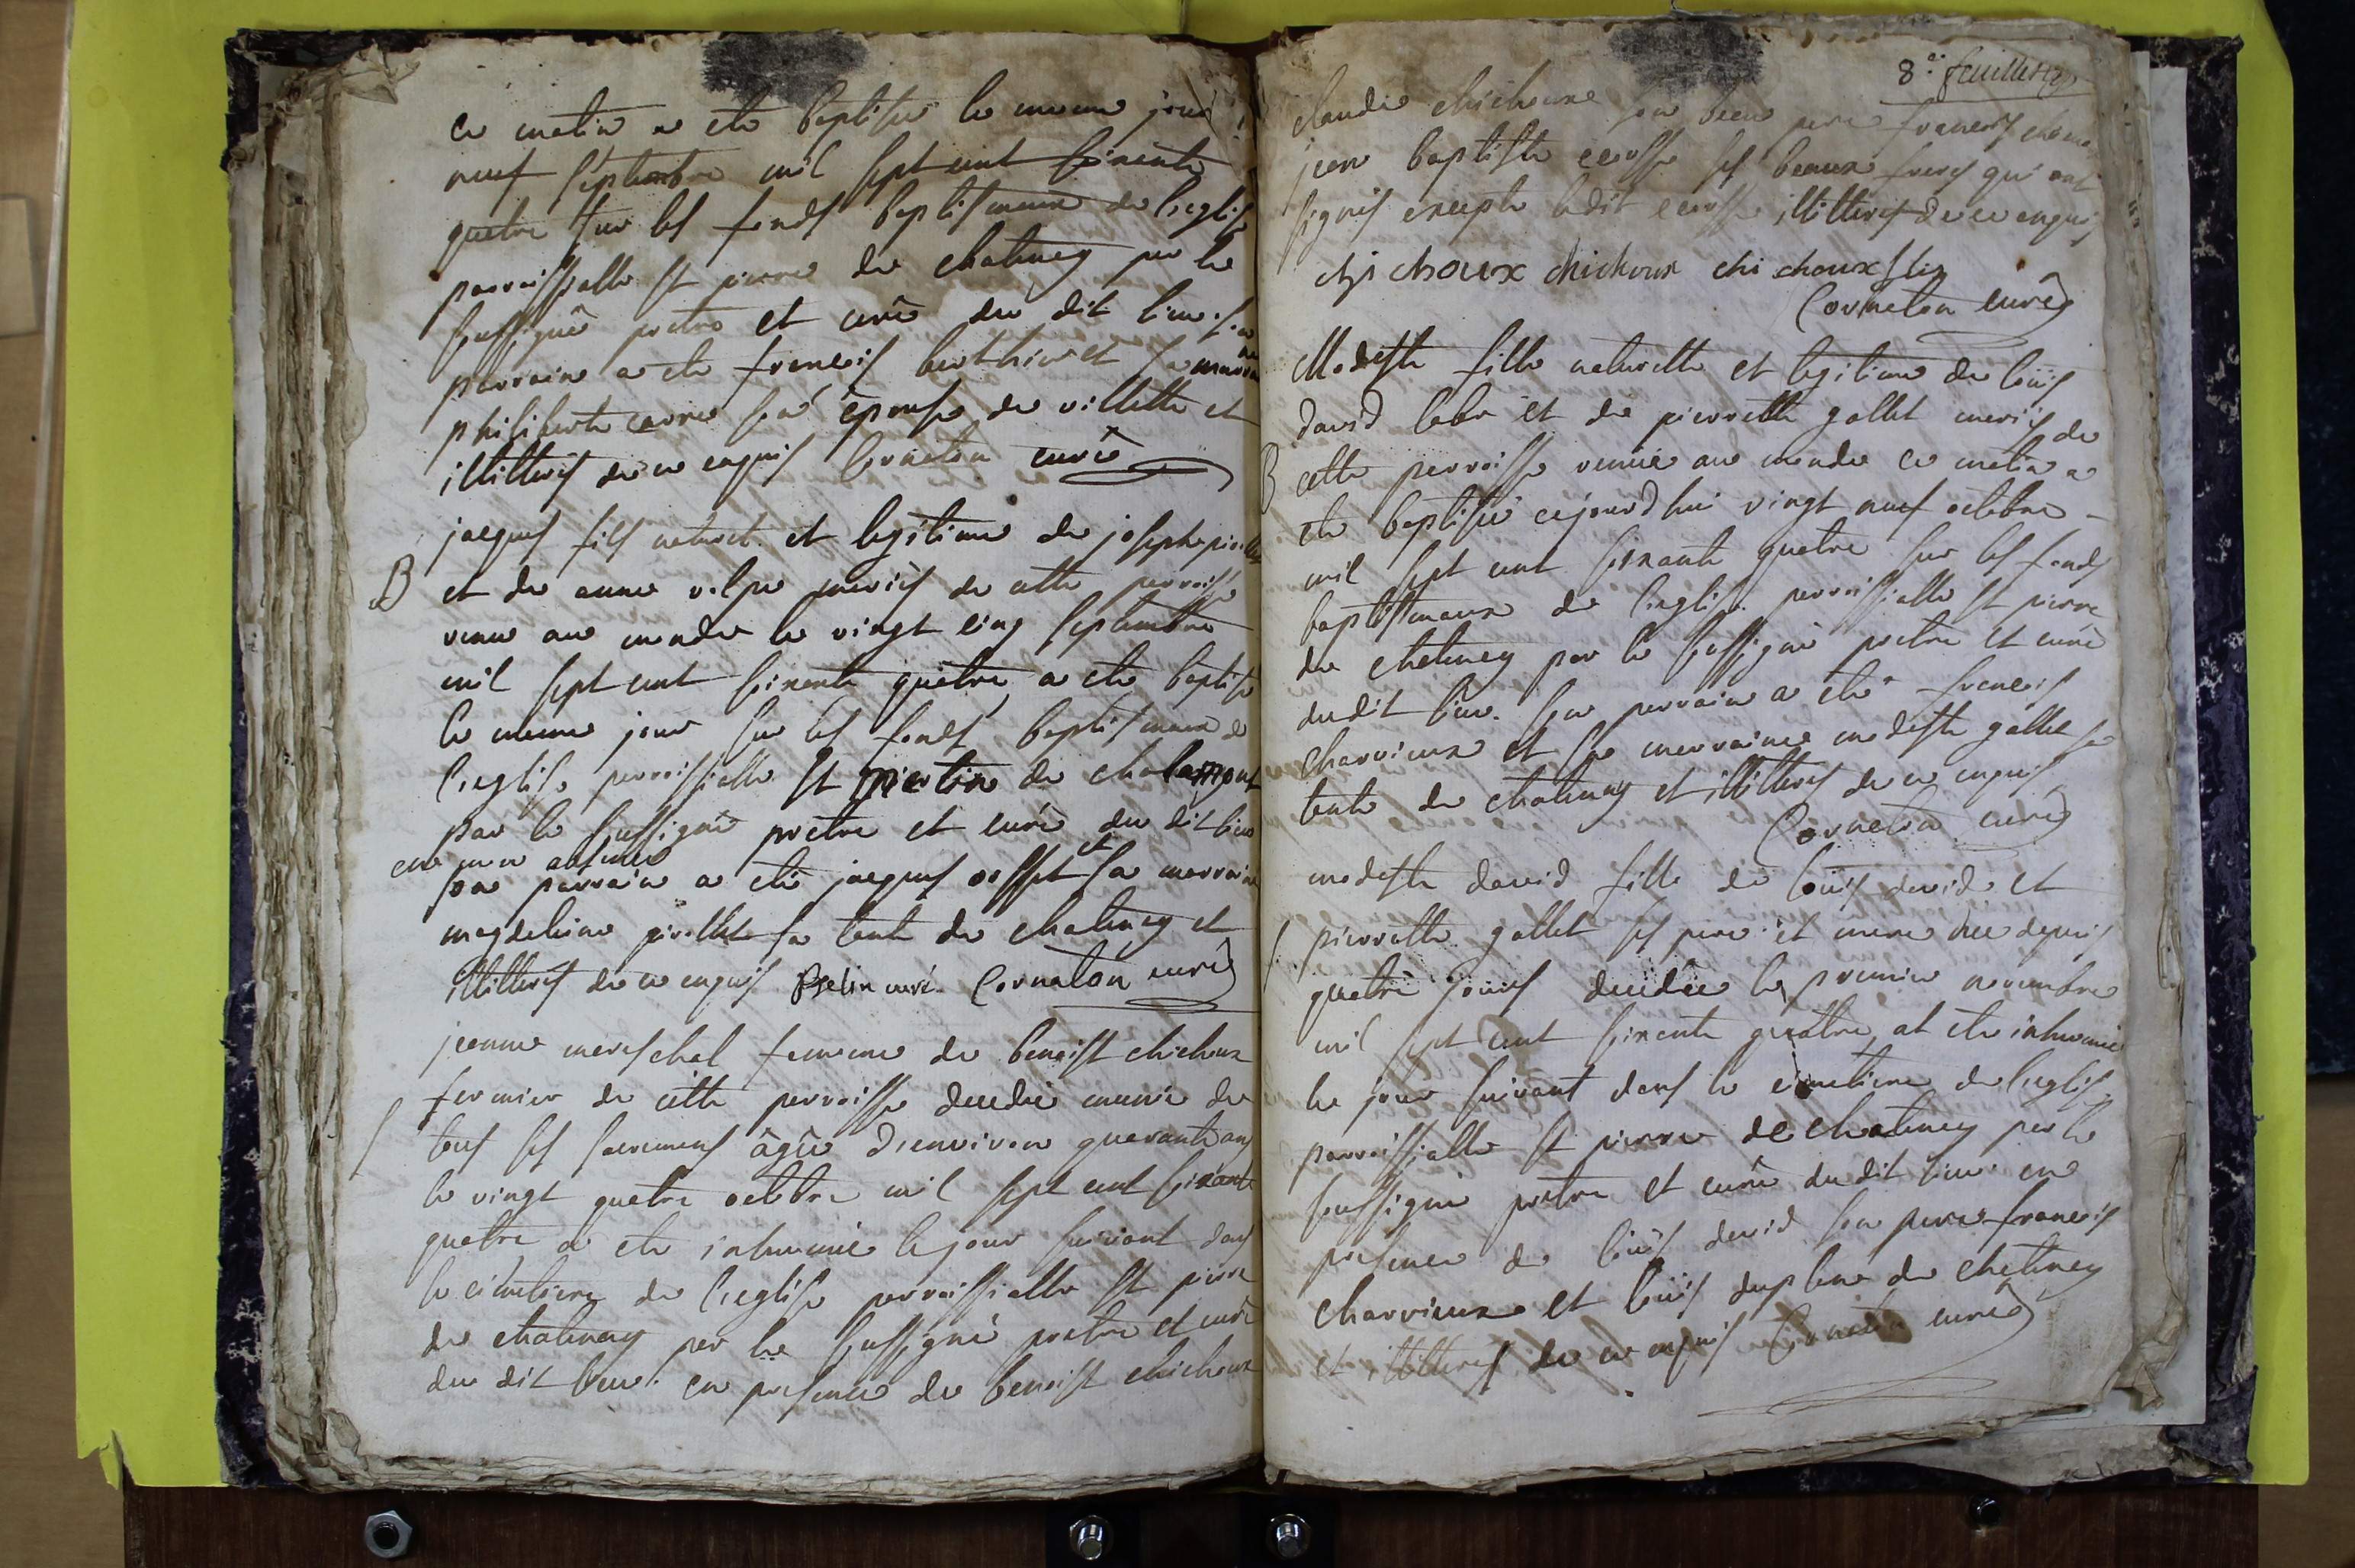 ce matin a ete baptisé le meme jour
neuf septembre mil sept cent soixante
quatre sur les fonds baptismaux de l'eglise
parroissialle st pierre de chatenay par le
soussigné pretre et curé du dit lieu. son
parrain a ete francois berthier et sa marraine
philiberte carre son épouse de villette et
illitterés de ce enquis Cornaton curé
jacques fils naturel et legitime de joseph
B et de anne mariés de cette parroisse
venu au monde le vingt cinq septembre
mil sept cent soixante quatre a ete baptisé
le meme jour sur les fonds baptismaux de
l'eglise parroissialle st martin de chalamont
par le soussigné pretre et curé du dit lieu
en mon absence
son parrain a eté jacques et sa marraine
magdelaine sa tante de chatenay et
illitterés de ce enquis curé Cornaton curé
jeanne mareschal femme de benoist chichoux
fermier de cette parroisse decedée munie de
tous ses sacremens âgée d'environ quarante ans
le vingt quatre octobre mil sept cent soixante
quatre a ete inhumée le jour suivant dans
le cimetiere de l'eglise parroissialle st pierre
de chatenay par le soussigné pretre et curé
du dit lieu. en presence de benoist chichoux
8e. feuillet
claude chichoux son beau pere francois
jean baptiste ses beaux freres qui ont
signés excepte ledit illitterés de ce enquis
chichoux chichoux chichoux fils
Cornaton curé
Modeste fille naturelle et legitime de loüis
david et de pierrette gallet mariés de
B cette parroisse venüe au monde ce matin a
ete baptisée cejourd'hui vingt neuf octobre
mil sept cent soixante quatre sur les fonds
baptismaux de l'eglise parroissialle st pierre
de chatenay par le soussigné pretre et curé
dudit lieu. son parrain a eté francois
charvieux et sa marraine modeste gallet sa
tante de chatenay et illitterés de ce enquis
Cornaton curé
modeste david fille de loüis david et
pierrette gallet ses pere et mere née depuis
quatre jours decedée le premier novembre
mil sept cent soixante quattre at ete inhumée
le jour suivant dans le cimetiere de l'eglise
parroissialle st pierre de chatenay par le
soussigné pretre et curé dudit lieu en
presence de loüis david son pere francois
charvieux et loüis de chatenay
et illitterés de ce enquis Cornaton curé